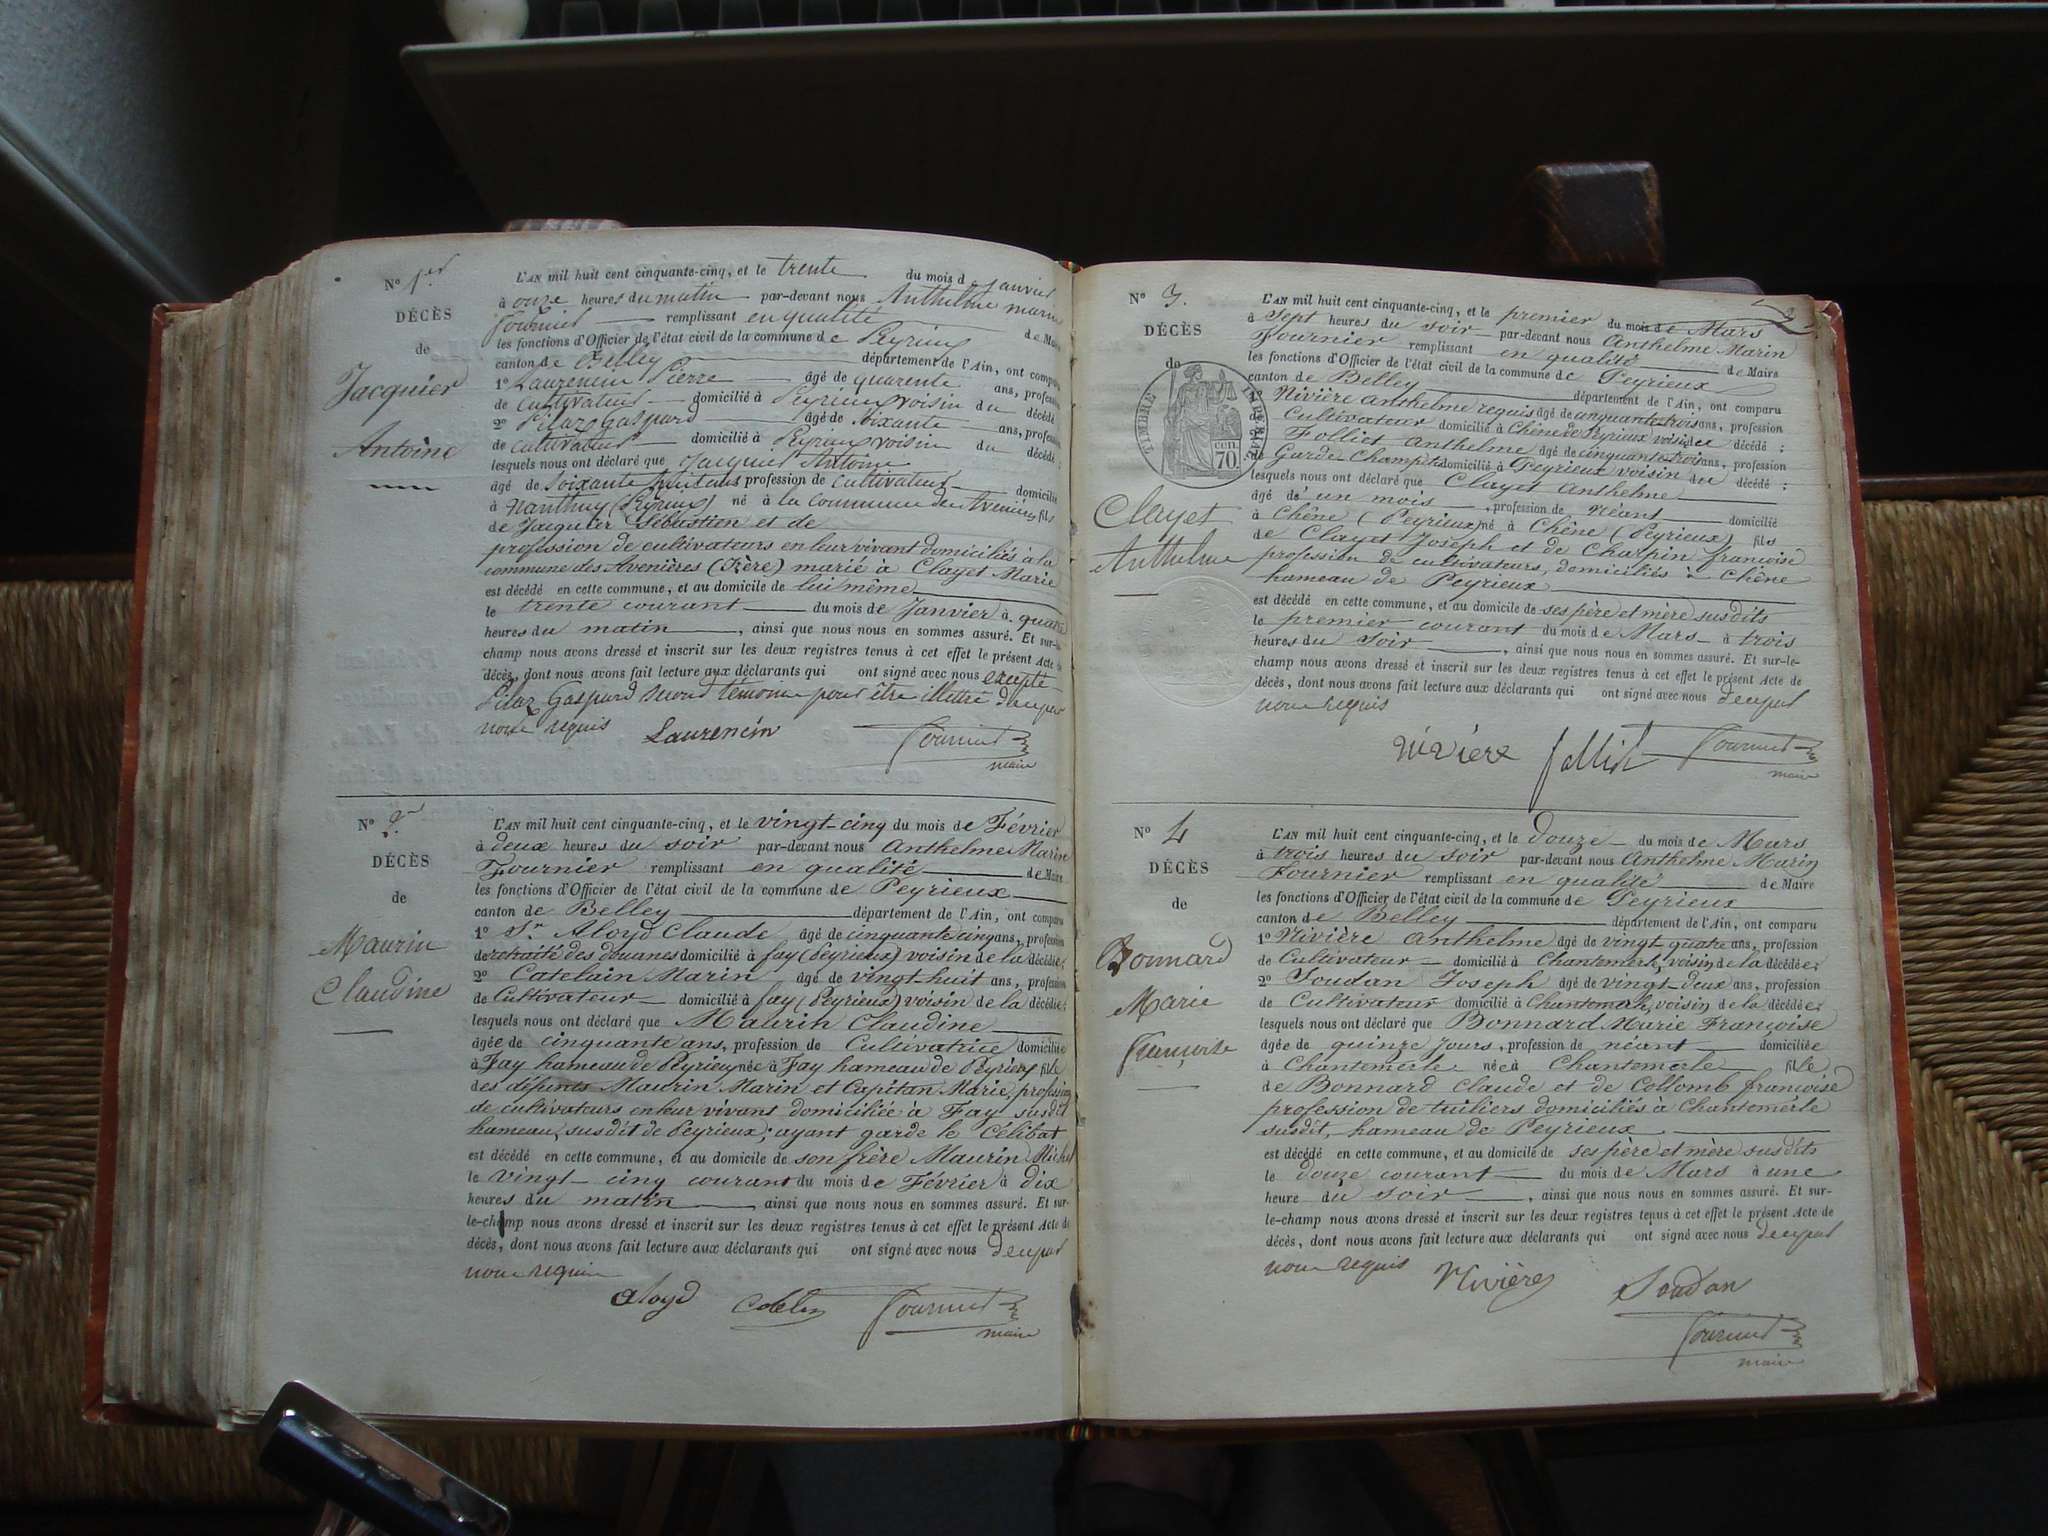 N° 1er
DÉCÈS
de
Jacquier
Antoine
L'AN mil huit cent cinquante-cinq, et le trente du mois d janvier
à onze heures du matin par-devant nous Anthelme marin
fournier remplissant en qualité de Maire
les fonctions d'Officier de l'état civil de la commune de Peyrieux
canton de Belley département de l'Ain, ont comparu
1° Laurencin Pierre âgé de quarente ans, profession
de cultivateur domicilié à Peyrieux voisin du décédé
2° Pilaz Gaspard âgé de soixante ans, profession
de cultivateur domicilié à Peyrieux voisin du décédé;
lesquels nous ont déclaré que Jacquier Antoine
âgé de soixante huit ans profession de cultivateur domicilié
à Nanthuy (Peyrieux) né à la commune des Avenières fils
de Jacquier Sébastien et de
profession de cultivateurs en leur vivant domiciliés à la
commune des Avenières (Isère) marié à Clayet Marie
est décédé en cette commune, et au domicile de lui même
le trente courant du mois de Janvier à quatre
heures du matin, ainsi que nous nous en sommes assuré. Et sur-le-
champ nous avons dressé et inscrit sur les deux registres tenus à cet effet le présent Acte de
décès, dont nous avons fait lecture aux déclarants qui ont signé avec nous excepté
Pilaz Gaspard second témoin pour être illettré de ce par
nous requis Laurencin Fournier
maire
N° 2
DÉCÈS
de
Maurin
Claudine
L'AN mil huit cent cinquante-cinq, et le vingt-cinq du mois de Février
à deux heures du soir par-devant nous Anthelme Marin
Fournier remplissant en qualité de Maire
les fonctions d'Officier de l'état civil de la commune de Peyrieux
canton de Belley département de l'Ain, ont comparu
1° Sr Aloyd Claude âgé de cinquante cinq ans, profession
de retraité des douanes domicilié à fay (Peyrieux) voisin de la décédée;
2° Catelain Marin âgé de vingt-huit ans, profession
de Cultivateur domicilié à fay (Peyrieux) voisin de la décédée;
lesquels nous ont déclaré que Maurin Claudine
âgée de cinquante ans, profession de Cultivatrice domiciliée
à Fay hameau de Peyrieux née à Fay hameau de Peyrieux fille
des défunts Maurin Marin et Capitan Marie, profession
de cultivateurs en leur vivans domiciliée à Fay susdit
hameau, susdit de Peyrieux; ayant garde le célibat
est décédé en cette commune, et au domicile de son frère Maurin Michel
le vingt-cinq courant du mois de Février à dix
heures du matin ainsi que nous nous en sommes assuré. Et sur-
le-champ nous avons dressé et inscrit sur les deux registres tenus à cet effet le présent Acte de
décès, dont nous avons fait lecture aux déclarants qui ont signé avec nous de ce par
nous requis
aloyd Fournier
maire
N° 3.
DÉCÈS
de
TIMBRE IMPÉRIAL
CEN.
70.
Clayet
Anthelme
L'AN mil huit cent cinquante-cinq, et le premier du mois de Mars
à Sept heures du soir par-devant nous Anthelme Marin
Fournier remplissant en qualité de Maire
les fonctions d'Officier de l'état civil de la commune de Peyrieux
canton de Belley département de l'Ain, ont comparu
1° Nivière anthelme requis âgé de cinquante-trois ans, profession
Cultivateur domicilié à Chêne de Peyrieux voisin du décédé;
Folliet Anthelme âgé de cinquante trois ans, profession
de Garde Champêtre domicilié à Peyrieux voisin du décédé;
lesquels nous ont déclaré que Clayet Anthelme
âgé d'un mois, profession de Néant domicilié
à Chêne (Peyrieux) né à Chêne (Peyrieux) fils
de Clayet Joseph et de Charpin françoise
profession de cultivateurs, domiciliés à Chêne
hameau de Peyrieux
est décédé en cette commune, et au domicile de ses père et mère susdits
le premier courant du mois de Mars à trois
heures du soir, ainsi que nous nous en sommes assuré. Et sur-le-
champ nous avons dressé et inscrit sur les deux registres tenus à cet effet le présent Acte de
décès, dont nous avons fait lecture aux déclarants qui ont signé avec nous de ce par
nous requis
Nivière folliet Fournier
maire
N° 4
DÉCÈS
de
Bonnard
Marie
françoise
L'AN mil huit cent cinquante-cinq, et le douze du mois de Mars
à trois heures du soir par-devant nous Anthelme Marin
Fournier remplissant en qualité de Maire
les fonctions d'Officier de l'état civil de la commune de Peyrieux
canton de Belley département de l'Ain, ont comparu
1° Nivière anthelme âgé de vingt-quatre ans, profession
de Cultivateur domicilié à Chantemerle, voisin de la décédée;
2° Soudan Joseph âgé de vingt-deux ans, profession
de Cultivateur domicilié à Chantemerle, voisin de la décédée;
lesquels nous ont déclaré que Bonnard Marie Françoise
âgée de quinze jours, profession de néant domiciliée
à Chantemerle née à Chantemerle fille
de Bonnard Claude et de Collomb françoise
profession de tuiliers domiciliés à Chantemerle
susdit, hameau de Peyrieux
est décédé en cette commune, et au domicile de ses père et mère susdits
le douze courant du mois de Mars à une
heure du soir, ainsi que nous nous en sommes assuré. Et sur-
le-champ nous avons dressé et inscrit sur les deux registres tenus à cet effet le présent Acte de
décès, dont nous avons fait lecture aux déclarants qui ont signé avec nous de ce par
nous requis Nivière Soudan
Fournier
maire